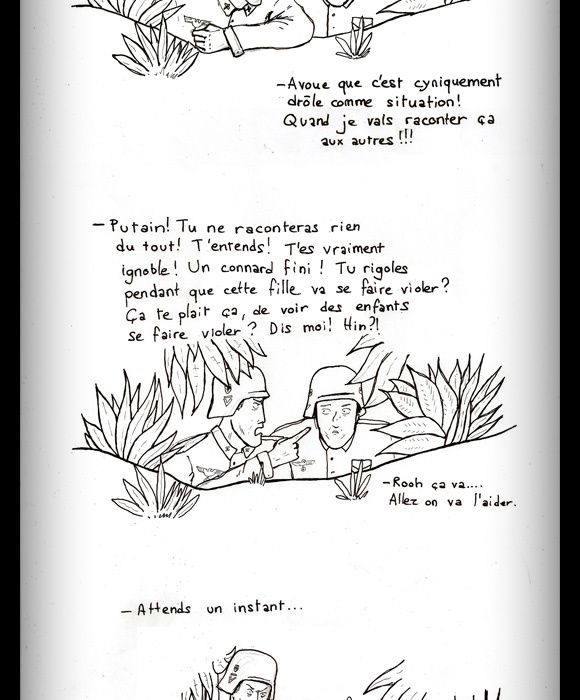 -Avoue que c'est cyniquement
drôle comme situation!
Quand je vais raconter ça
aux autres!!!
- Putain! Tu ne raconteras rien
du tout! T'entends! T'es vraiment
ignoble! Un connard fini! Tu rigoles
pendant que cette fille va se faire violer?
Ça te plait ça, de voir des enfants
se faire violer? Dis moi! Hin?!
-Rooh ça va....
Allez on va l'aider.
- Attends un instant...